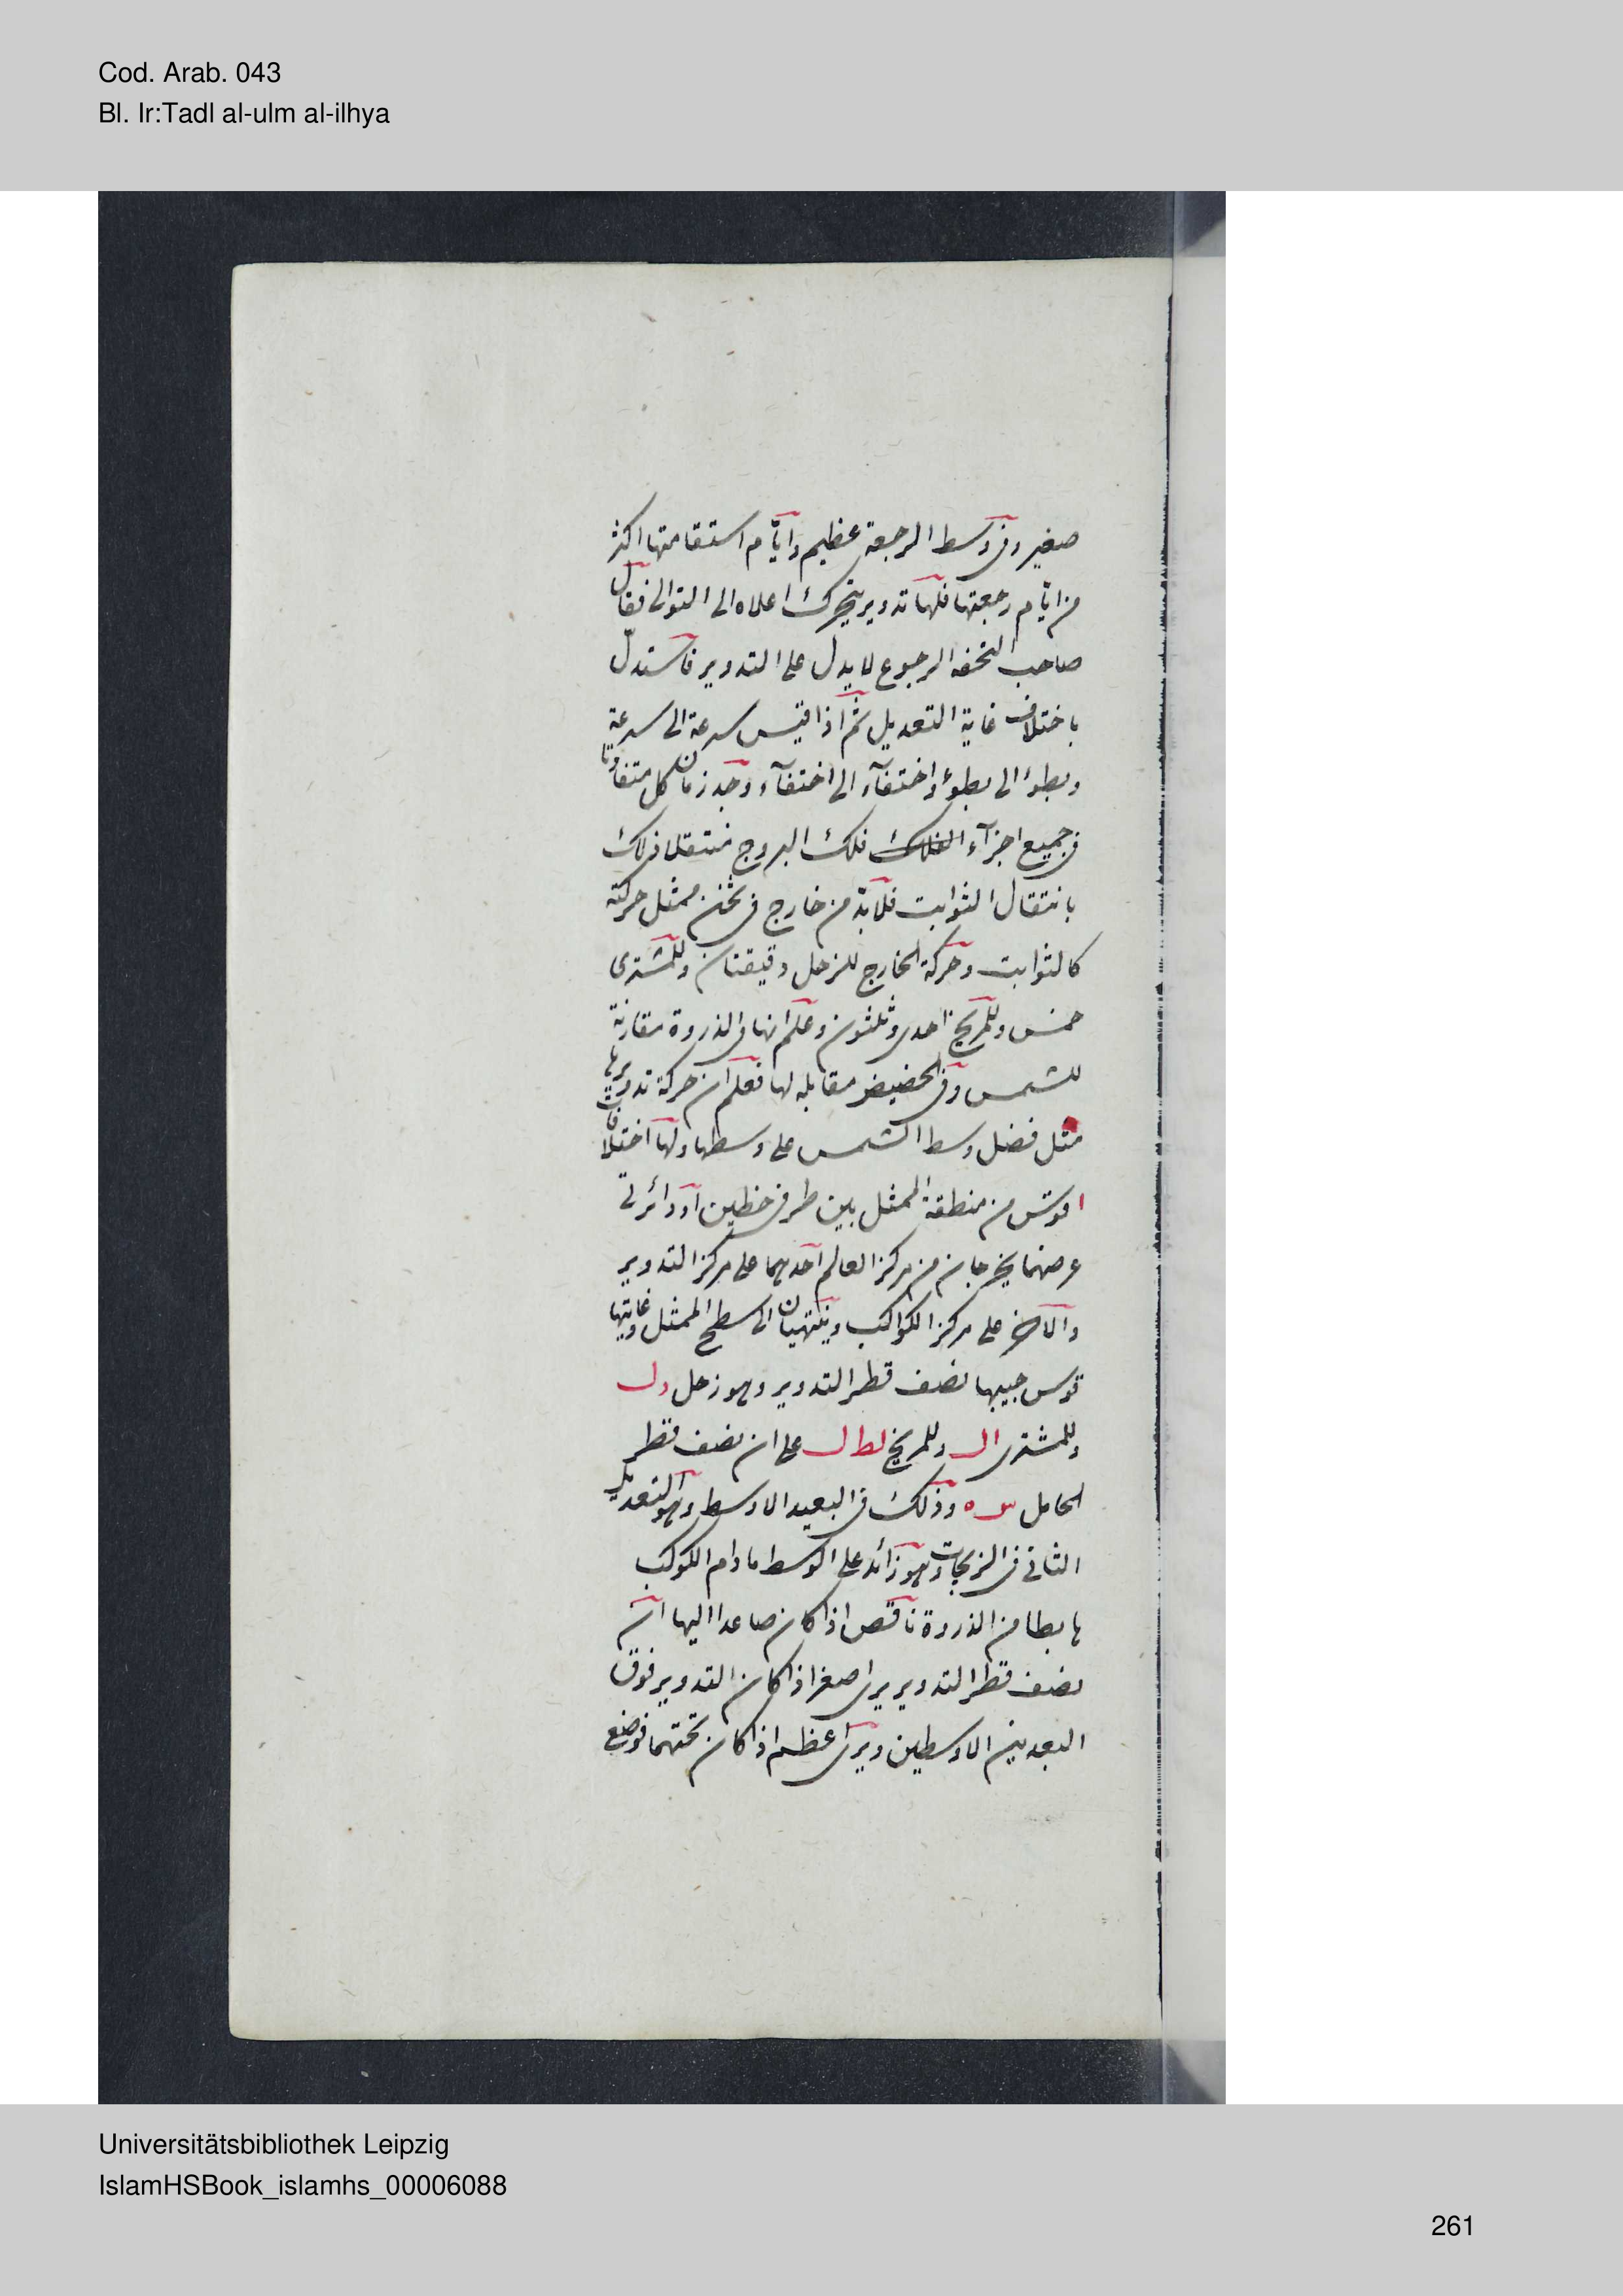 Cod. Arab. 043
Bl. Ir:Tadl al-ulm al-ilhya
صغير وفى وسط الرجعة عظيم وايّام استقامتها اكثر
من ايّام رجعتها فلها تدوير يتحرك اعلاه الى التوالى فقال
صاحب التحفه الرجوع لا يدل على التدوير فاستدلّ
باختلاف غاية التعديل ثمّ اذا قيس سرعة الى سرعة
وبطؤ الى بطؤ واختفآء الى اختفآء وجد زمان كل متفاوتا
فى جميع اجزآء الفلك فلك البروج منتقلا ذلك
بانتقال الثوابت فلابدّ من خارج فى ثخن ممثل حركته
كالثوابت وحركة الخارج للزحل دقيقتان وللمشترى
خمس وللمريخ احدى وثلثون وعلم انها فى الذروة مقارنة
للشمس وفى الحضيض مقابله لها فعلم ان حركة تدويرها
مثل فضل وسط الشمس على وسطها ولها اختلافات
ا قوس من منطقة الممثل بين طرفى خطين او دائرتى
عرضهما يخرجان من مركز العالم احدهما على مركز التدوير
والاخر على مركز الكواكب وينتهيان الى سطح الممثل وغايتها
قوس جيبها نصف قطر التدوير وهو زحل ول
وللمشترى ال وللمريخ لطل على ان نصف قطر
الحامل س ه وذلك فى البعيد الاوسط وهو التعديل
الثانى فى الزيجات وهو زائد على الوسط مادام الكوكب
هابطا من الذروة ناقص اذا كان صاعدا اليها ان
نصف قطر التدوير يرى اصغر اذا كان التدوير فوق
البعدين الاوسطين ويرى اعظم اذا كان تحتهما فوضع
Universitätsbibliothek Leipzig
IslamHSBook_islamhs_00006088
261